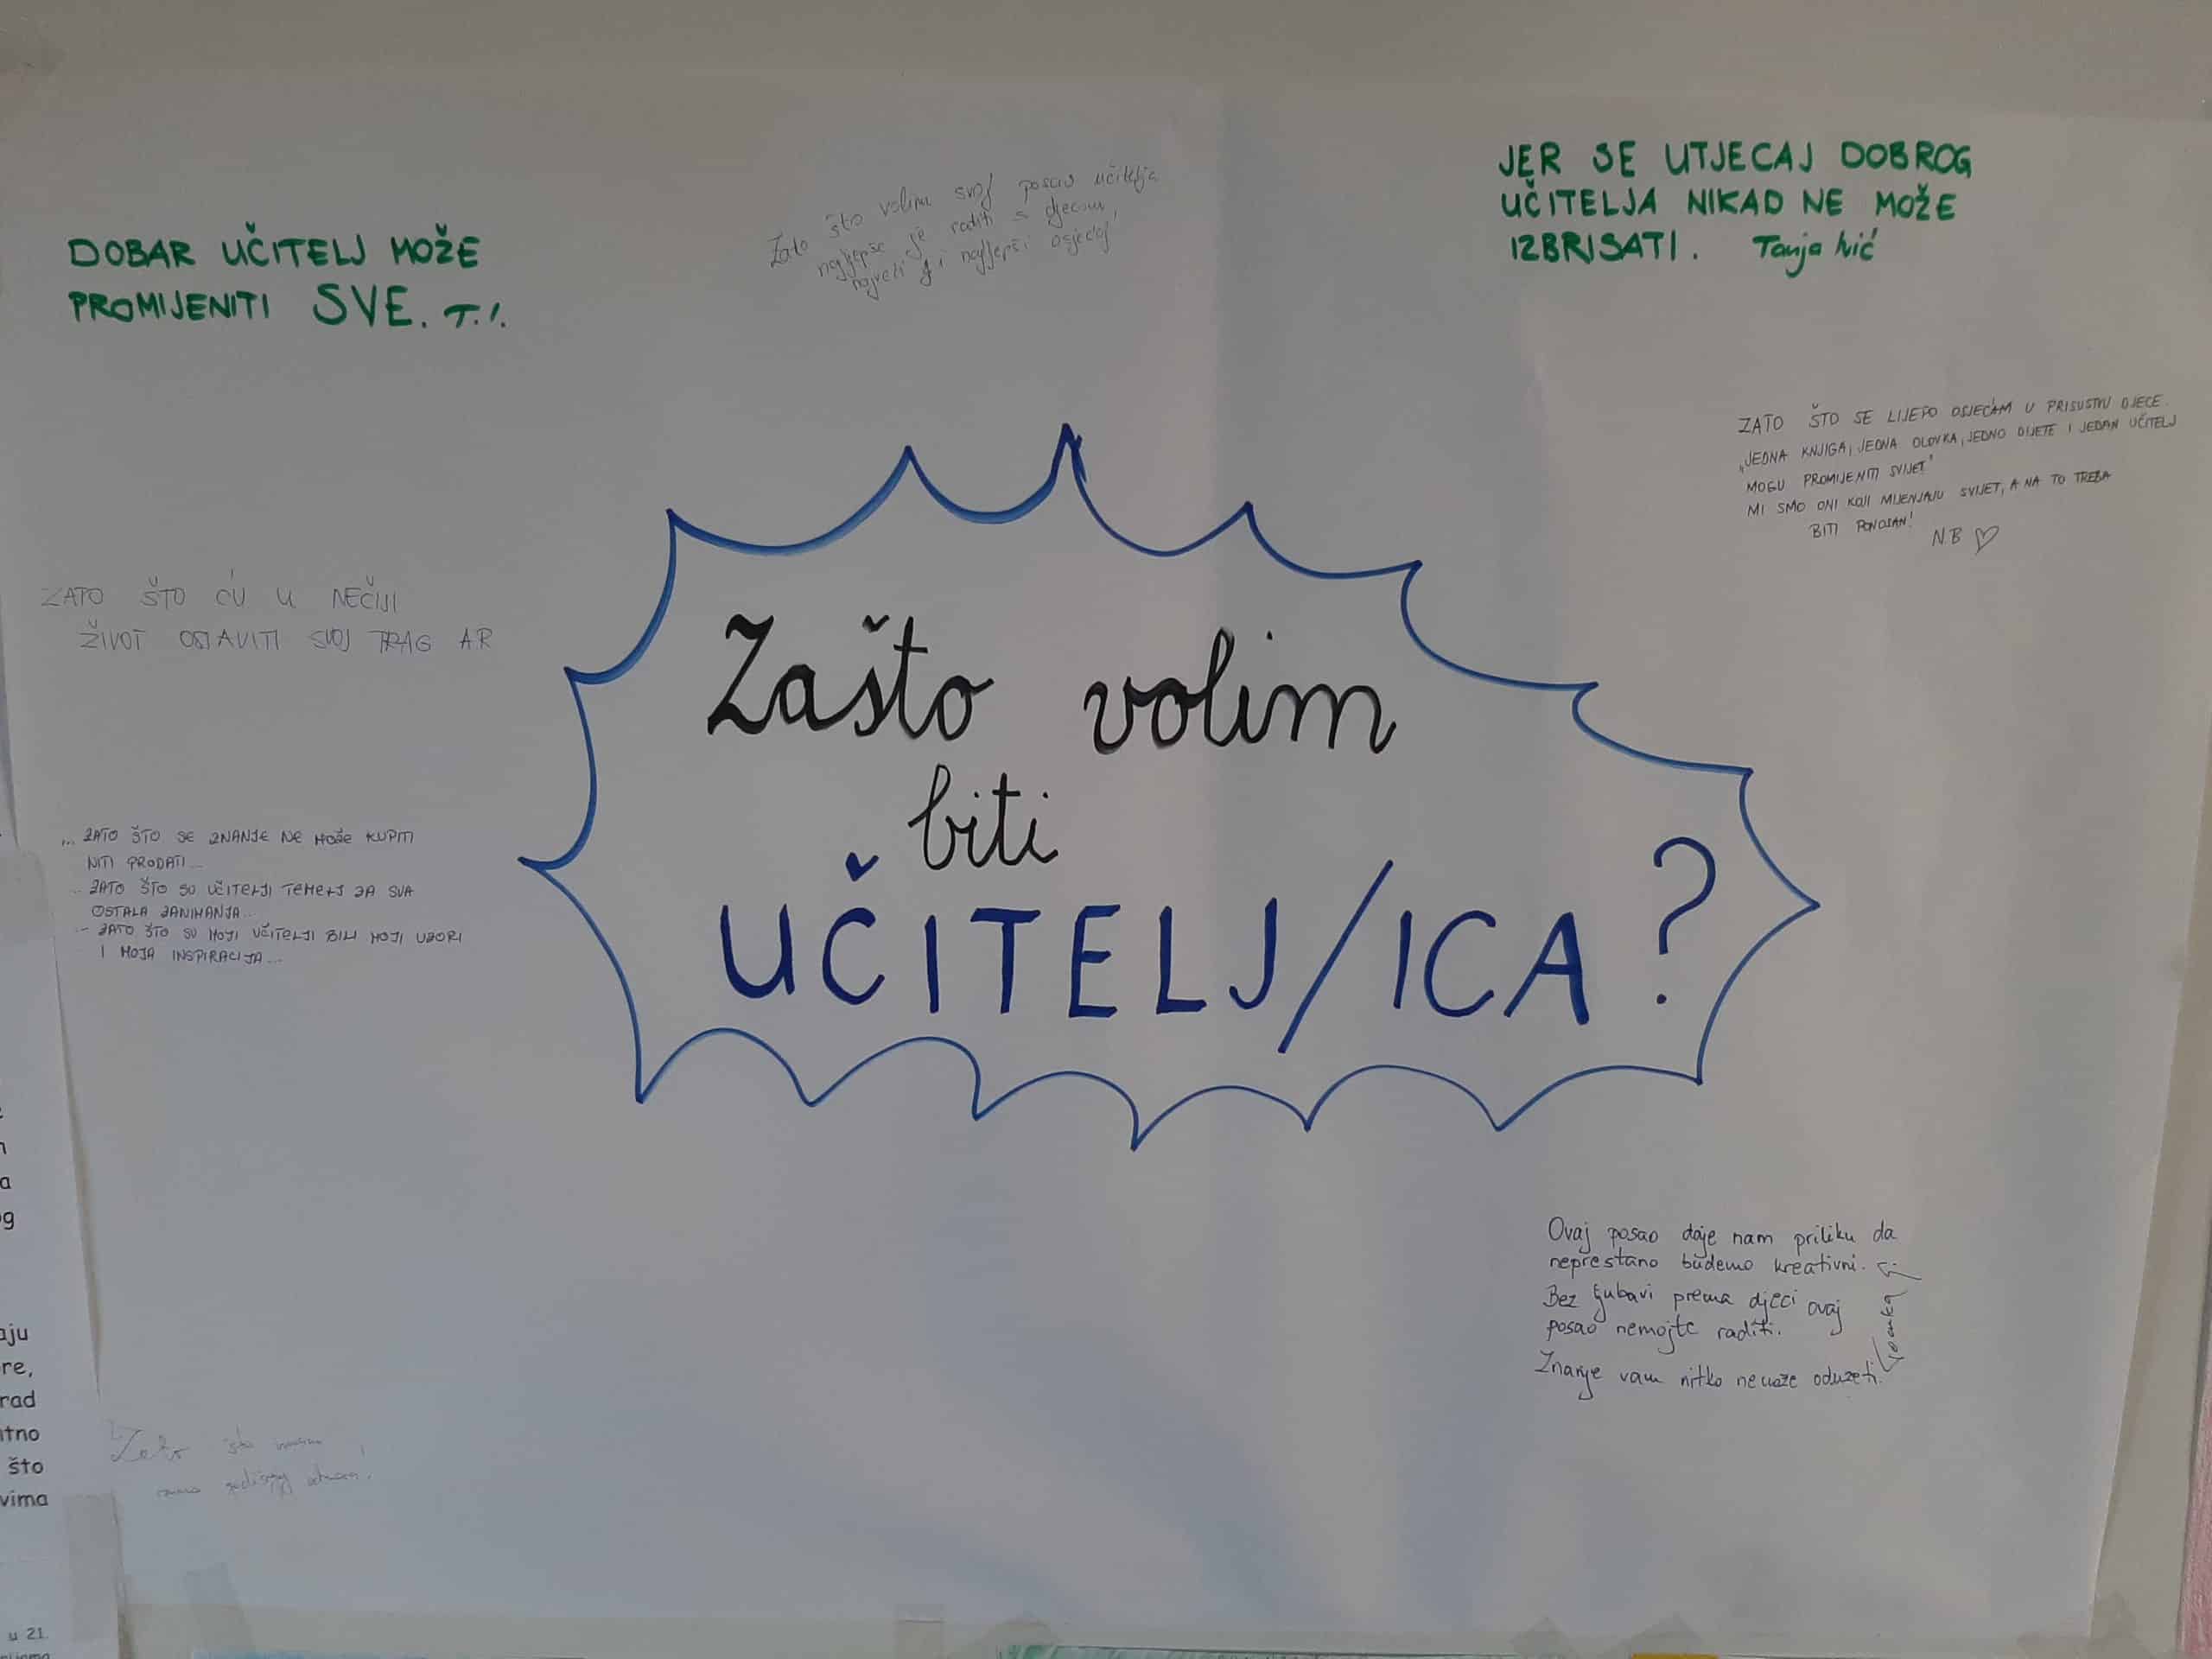 DOBAR UČITELJ MOŽE
PROMIJENITI SVE. T.I.
Zato što volim svoj posao učitelja
najljepše je raditi s djecom
najveći i najljepši osjećaj!
JER SE UTJECAJ DOBROG
UČITELJA NIKAD NE MOŽE
IZBRISATI. Tanja Ivić
ZATO ŠTO SE LIJEPO OSJEĆAM U PRISUSTVU DJECE.
„JEDNA KNJIGA, JEDNA OLOVKA, JEDNO DIJETE I JEDAN UČITELJ
MOGU PROMIJENITI SVIJET"
MI SMO ONI KOJI MIJENJAJU SVIJET, A NA TO TREBA
BITI PONOSAN!
N.B ♡
ZATO ŠTO ĆU U NEČIJI
ŽIVOT OSTAVITI SVOJ TRAG A.R
Zašto volim
biti
UČITELJ/ICA?
... ZATO ŠTO SE ZNANJE NE MOŽE KUPITI
NITI PRODATI...
... ZATO ŠTO SU UČITELJI TEMELJ ZA SVA
OSTALA ZANIMANJA...
... ZATO ŠTO SU MOJI UČITELJI BILI MOJI UZORI
I MOJA INSPIRACIJA...
Ovaj posao daje nam priliku da
neprestano budemo kreativni.
Bez ljubavi prema djeci ovaj
posao nemojte raditi.
Znanje vam nitko ne može oduzeti.
Zato što
aju
re,
rad
itno
što
vima
u 21.